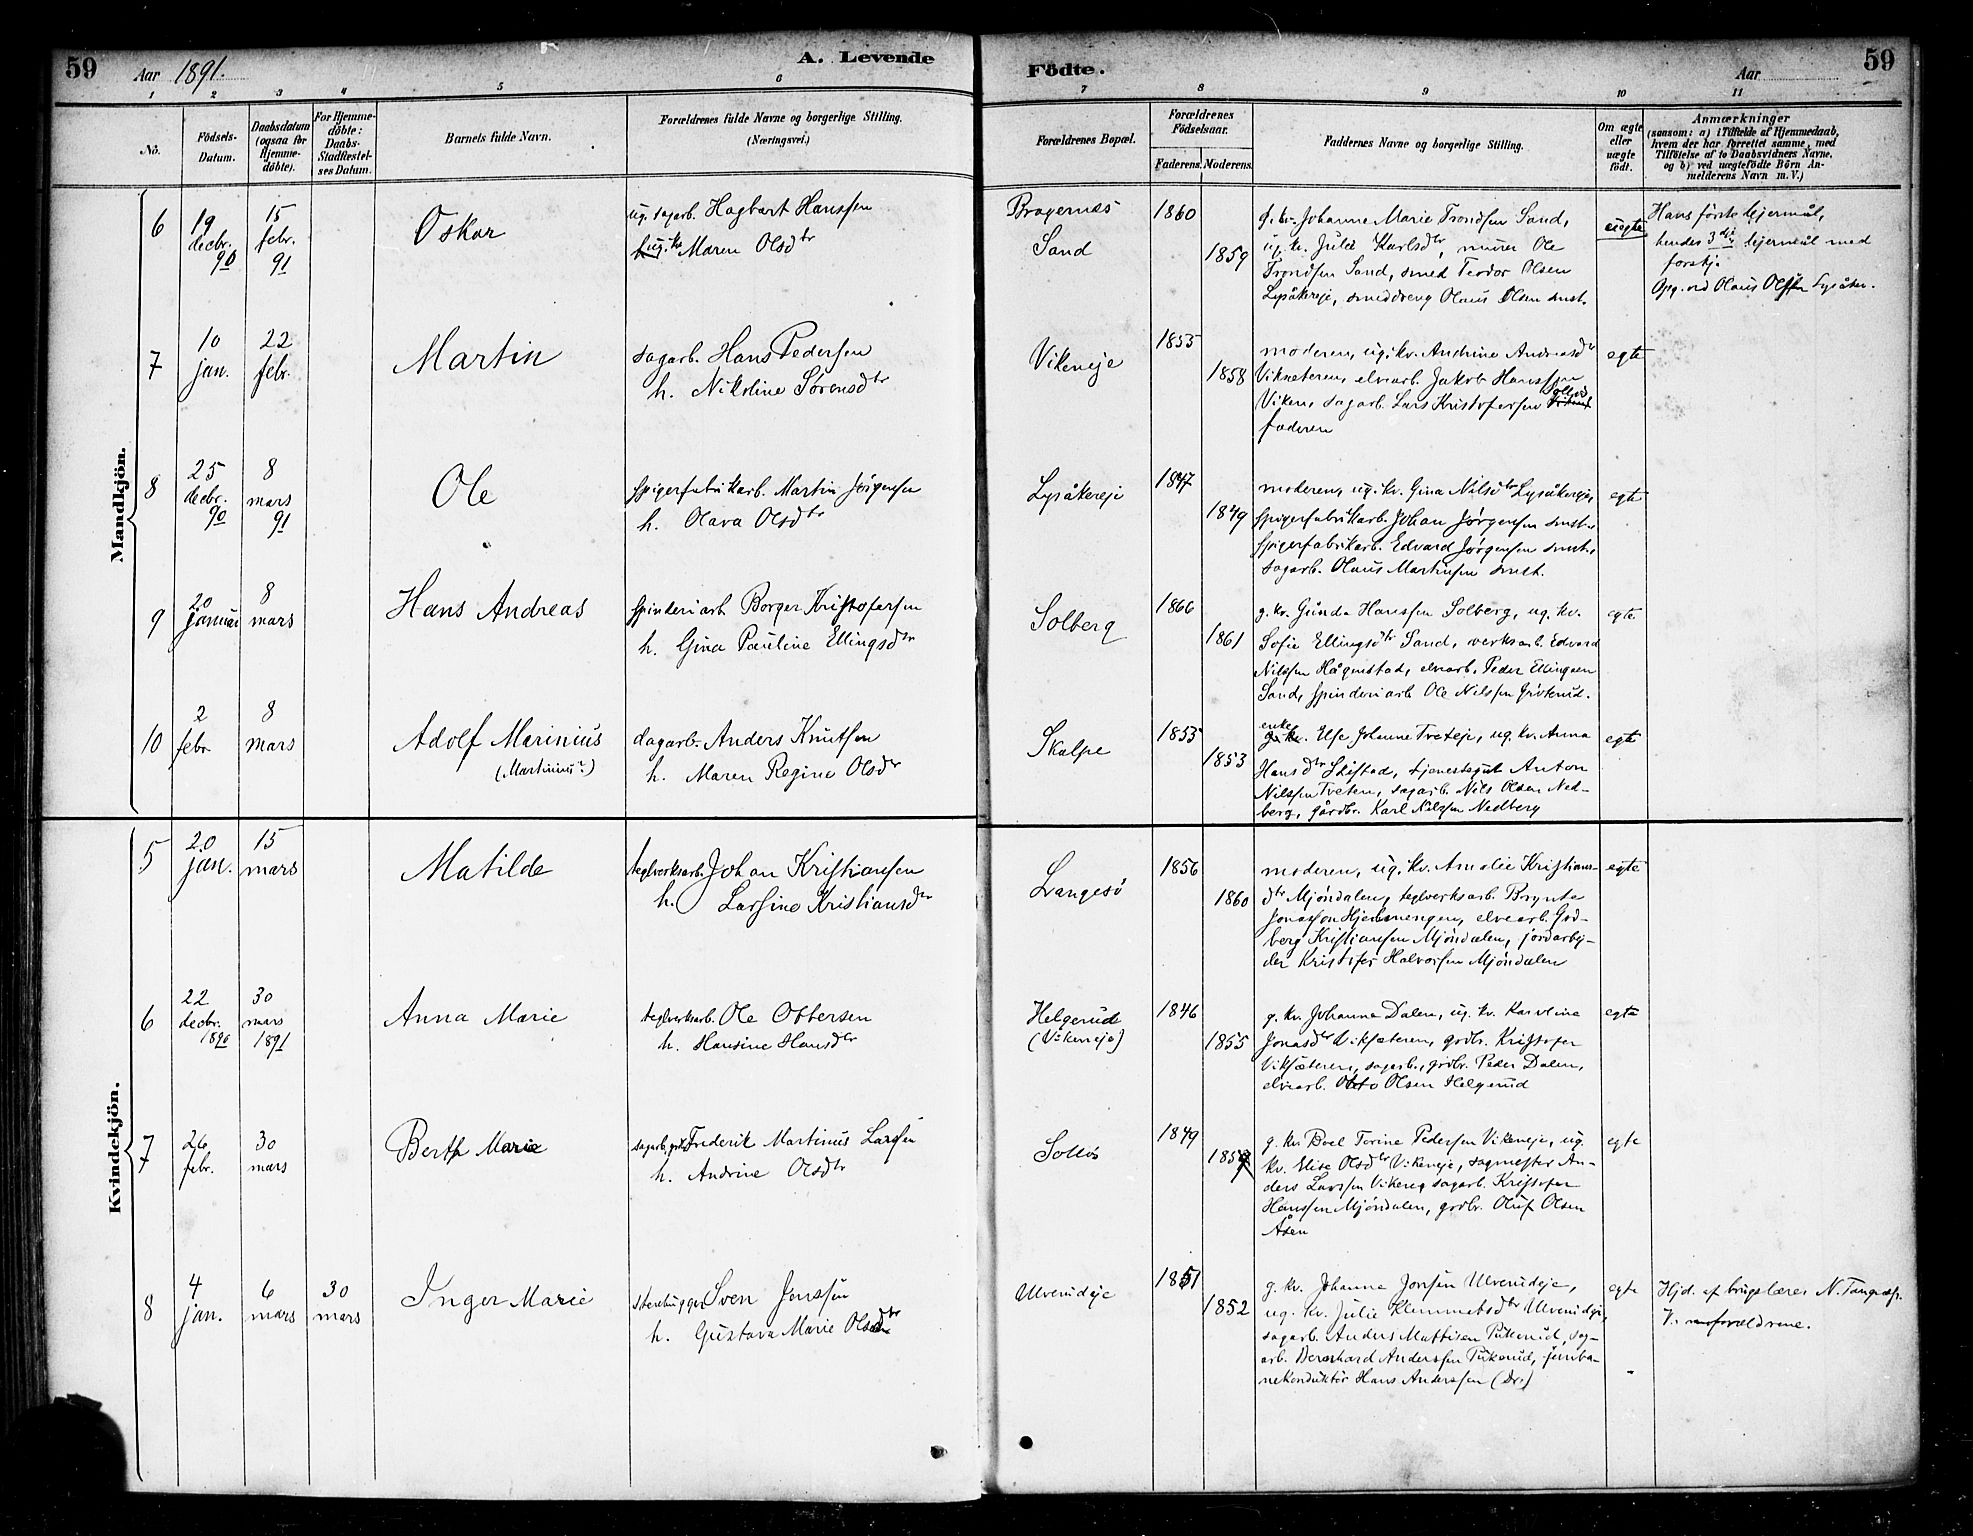 59
Aar 1891.
A. Levende
Födte.
Aar
59
1 2 3 4 5 6 7 8 9 10 11
No.
Födsels-
Datum.
Daabsdatum
(ogsaa for
Hjemme-
döbte).
For Hjemme-
döbte:
Daabs-
Stadfæstel-
ses Datum.
Barnets fulde Navn.
Forældrenes fulde Navne og borgerlige Stilling.
(Næringsvei.)
Forældrenes Bopæl.
Forældrenes
Födselsaar.
Faderens. Moderens.
Faddernes Navne og borgerlige Stilling.
Om ægte
eller
uægte
födt.
Anmærkninger
(saasom: a) i Tilfælde af Hjemmedaab,
hvem der har forrettet samme, med
Tilföielse af to Daabsvidners Navne,
og b) ved uægtefödte Börn An-
melderens Navn m. V.)
Mandkjön.
6
19
decbr.
90
15
febr.
91
Oskar
ug. sagarb. Hagbart Hanssen
kv. Maren Olsdtr
Bragernes
Sand
1860
1859
g. kv. Johanne Marie Trondsen Sand,
ug. kv. Julie Karlsdtr, murer Ole
Trondsen Sand, smed Teodor Olsen
Lysåkereje, smeddreng Olaus Olsen smst.
uegte
Hans første lejermål,
hendes 3die lejermål med
forskj.
Opg. ved Olaus Olsen Lysåker.
7
10
jan.
22
febr.
Martin
sagarb. Hans Pedersen
h. Nikoline Sørensdtr
Vikeneje
1855
1858
moderen, ug. kv. Andrine Andreasdtr
Viksæteren, elvearb. Jakob Hanssen
Viken, sagarb. Lars Kristofersen
faderen
egte
8
25
decbr.
90
8
mars
91
Ole
spigerfabrikarb. Martin Jørgensen
h. Olava Olsdtr
Lysåkereje
1847
1849
moderen, ug. kv. Gina Nilsdtr Lysåkereje,
spigerfabrikarb. Johan Jørgensen smst.,
spigerfabrikarb. Edvard Jørgensen smst.,
sagarb. Olaus Martinsen smst.
egte
9
20
januar
8
mars
Hans Andreas
spinderiarb Borger Kristofersen
h. Gina Pauline Ellingsdtr
Solberg
1866
1861
g. kv. Gunda Hanssen Solberg, ug. kv.
Sofie Ellingsdtr Sand, verksarb. Edvard
Nilssen Hågenstad, elvearb. Peder Ellingsen
Sand, spinderiarb Ole Nilssen
egte
10
2
febr
8
mars
Adolf Marinius
(Martinius?)
dagarb. Anders Knutsen
h. Maren Regine Olsdtr
Skalpe
1853
1853
enke Else Johanne Treteje, ug. kv. Anna
Hansdtr Skistad, tjenestegut Anton
Nilssen Treten, sagarb. Nils Olsen Ned-
berg, gårdbr. Karl Nilssen Nedberg
egte
Kvindekjön.
5
20
jan.
15
mars
Matilde
teglverksarb. Johan Kristiansen
h. Larsine Kristiansdtr
Langesø
1856
1860
moderen, ug. kv. Amalie Kristians-
dtr Mjøndalen, teglverksarb. Brynte
Jonassen, elvearb. Gud-
berg Kristiansen Mjøndalen, jordarbej-
der Kristofer Halvorsen Mjøndalen
egte
6
22
decbr.
1890
30
mars
1891
Anna Marie
teglverksarb. Ole Ottersen
h. Hansine Hansdtr
Helgerud
(Vikeneje)
1846
1855
g. kv. Johanne Dalen, ug. kv. Karoline
Jonasdtr Viksæteren, grdbr. Kristofer
Viksæteren, sagarb., grdbr. Peder Dalen,
elvearb. Otto Olsen Helgerud
egte
7
26
febr.
30
mars
Berth Marie
sagarb. Frederik Martinus Larssen
h. Andrine Olsdtr
Solløs
1849
g. kv. Boel Torine Pedersen Vikeneje, ug.
kv. Elise Olsdtr Vikeneje, sagmester An-
ders Larssen Vikeneje, sagarb. Kristofer
Hanssen Mjøndalen, grdbr. Oluf Olsen
Åsen
egte
8
4
jan.
6
mars
30
mars
Inger Marie
stenhugger Sven Jonssen
h. Gustava Marie Olsdtr
Ulverudeje
1851
1852
g. kv. Johanne Jonsen Ulverudeje,
ug. kv. Julie Klemmetsdtr Ulverudeje,
sagarb. Anders Mattisen Pukerud, sag-
arb. Bernhard Anderssen Pukerud, jernba-
nekonduktør Hans Anderssen (Dr.)
egte
Hjd. af brugslærer N.
V. forældrene.